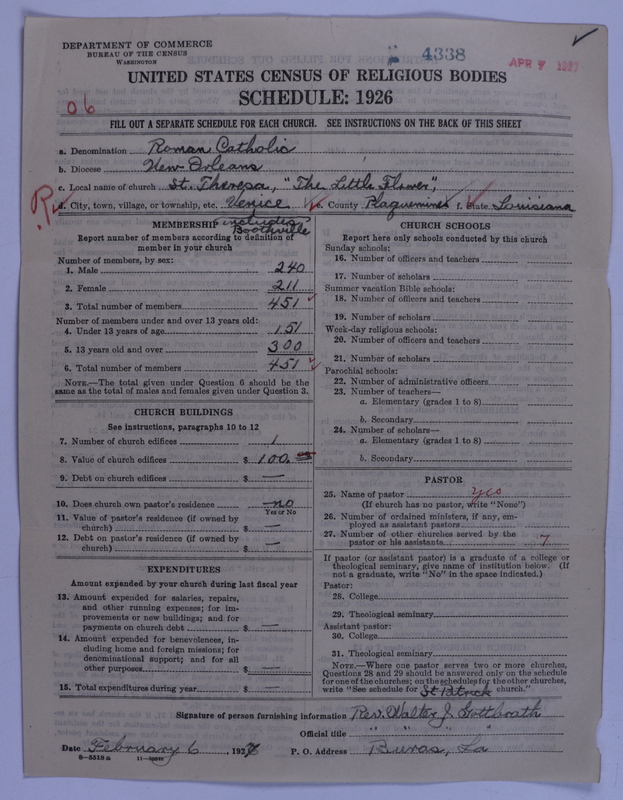 DEPARTMENT OF COMMERCE
BUREAU OF THE CENSUS
WASHINGTON
4338
APR 7 1927
UNITED STATES CENSUS OF RELIGIOUS BODIES
SCHEDULE: 1926
06
FILL OUT A SEPARATE SCHEDULE FOR EACH CHURCH. SEE INSTRUCTIONS ON THE BACK OF THIS SHEET
a. Denomination Roman Catholic
b. Diocese New Orleans
c. Local name of church St. Theresa, "The Little Flower",
d. City, town, village, or township, etc. Venice e. County Plaquemines f. State Louisiana
MEMBERSHIP includes Boothville
Report number of members according to definition of
member in your church
Number of members, by sex:
1. Male 240
2. Female 211
3. Total number of members 451
Number of members under and over 13 years old:
4. Under 13 years of age 151
5. 13 years old and over 300
6. Total number of members 451
NOTE.—The total given under Question 6 should be the
same as the total of males and females given under Question 3.
CHURCH BUILDINGS
See instructions, paragraphs 10 to 12
7. Number of church edifices 1
8. Value of church edifices $ 100.
9. Debt on church edifices $ —
10. Does church own pastor's residence no
Yes or No
11. Value of pastor's residence (if owned by
church) $ —
12. Debt on pastor's residence (if owned by
church) $ —
EXPENDITURES
Amount expended by your church during last fiscal year
13. Amount expended for salaries, repairs,
and other running expenses; for im-
provements or new buildings; and for
payments on church debt $ —
14. Amount expended for benevolences, in-
cluding home and foreign missions; for
denominational support; and for all
other purposes $ —
15. Total expenditures during year $ —
CHURCH SCHOOLS
Report here only schools conducted by this church
Sunday schools:
16. Number of officers and teachers
17. Number of scholars
Summer vacation Bible schools:
18. Number of officers and teachers
19. Number of scholars
Week-day religious schools:
20. Number of officers and teachers
21. Number of scholars
Parochial schools:
22. Number of administrative officers
23. Number of teachers—
a. Elementary (grades 1 to 8)
b. Secondary
24. Number of scholars—
a. Elementary (grades 1 to 8)
b. Secondary
PASTOR
25. Name of pastor yes
(If church has no pastor, write "None")
26. Number of ordained ministers, if any, em-
ployed as assistant pastors
27. Number of other churches served by the
pastor or his assistants 7
If pastor (or assistant pastor) is a graduate of a college or
theological seminary, give name of institution below. (If
not a graduate, write "No" in the space indicated.)
Pastor:
28. College
29. Theological seminary
Assistant pastor:
30. College
31. Theological seminary
NOTE.—Where one pastor serves two or more churches,
Questions 28 and 29 should be answered only on the schedule
for one of the churches; on the schedules for the other churches,
write "See schedule for St Patrick church."
Signature of person furnishing information Rev. Walter J. Gottbrath
Official title " " " "
Date February 6, 1927 P. O. Address Buras, La
8-5518a